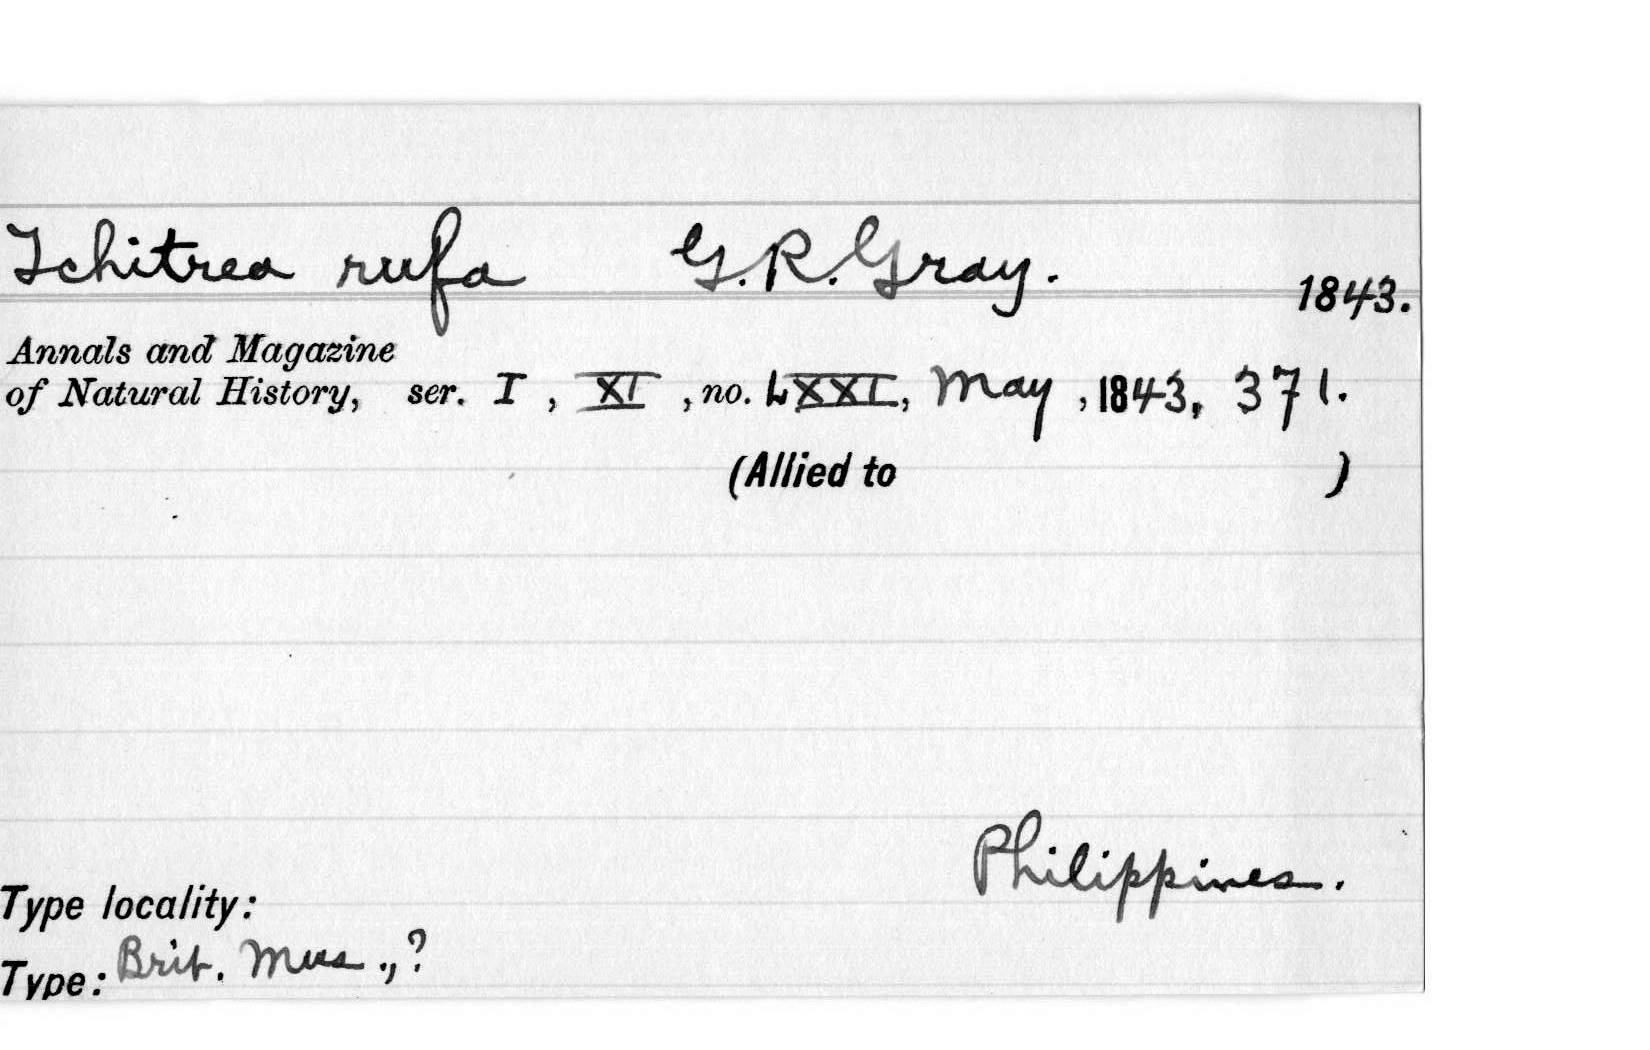 Tchitrea rufa G.R.Gray. 1843.
Annals and Magazine
of Natural History, ser. I, XI, no. LXXI, May, 1843, 371.
(Allied to )
Philippines.
Type locality:
Type: Brit. Mus., ?